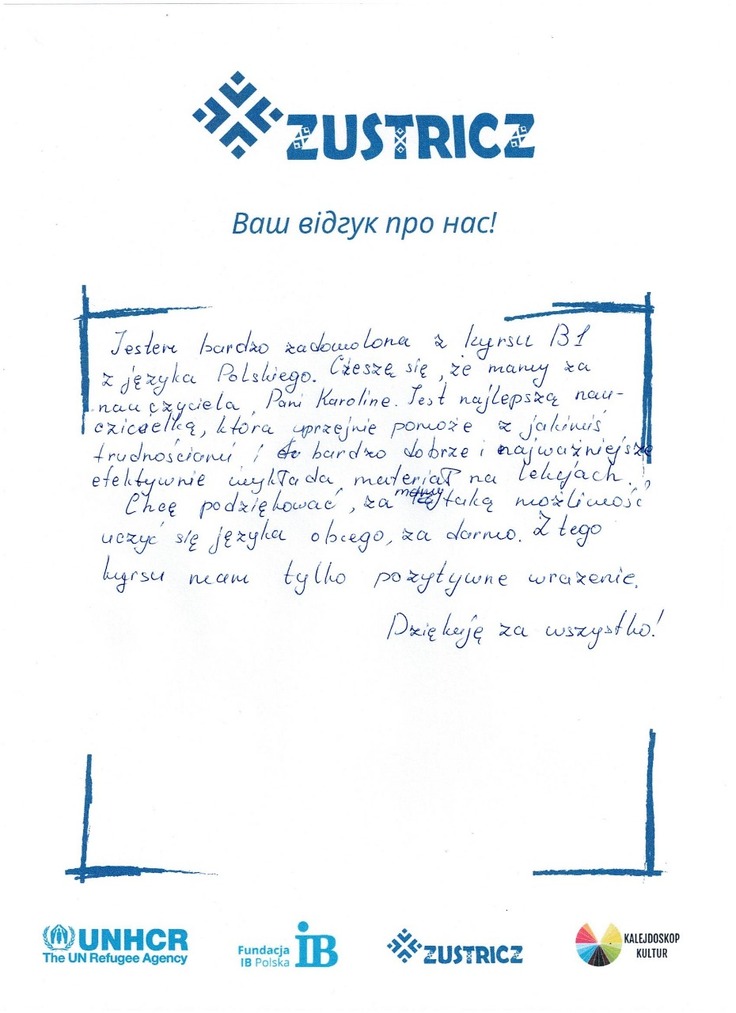 ZUSTRICZ
Ваш відгук про нас!
Jestem bardzo zadowolona z kyrsu B1
z języka Polskiego. Czeszę się, że mamy za
nauczyciela, Pani Karoline. Jest najlepszą nau-
czicielką, która uprzejnie pomoże z jakimiś
trudnościami i bardzo dobrze i najważniejsze
efektywnie wykłada materiał na lekcjach.
Chcę podziękować, za mamy taką możliwość
uczyć się języka obcego, za darmo. Z tego
kyrsu mam tylko pozytywne wrażenie.
Dziękuję za wszystko!
UNHCR
The UN Refugee Agency
Fundacja
IB Polska
IB
ZUSTRICZ
KALEJDOSKOP
KULTUR